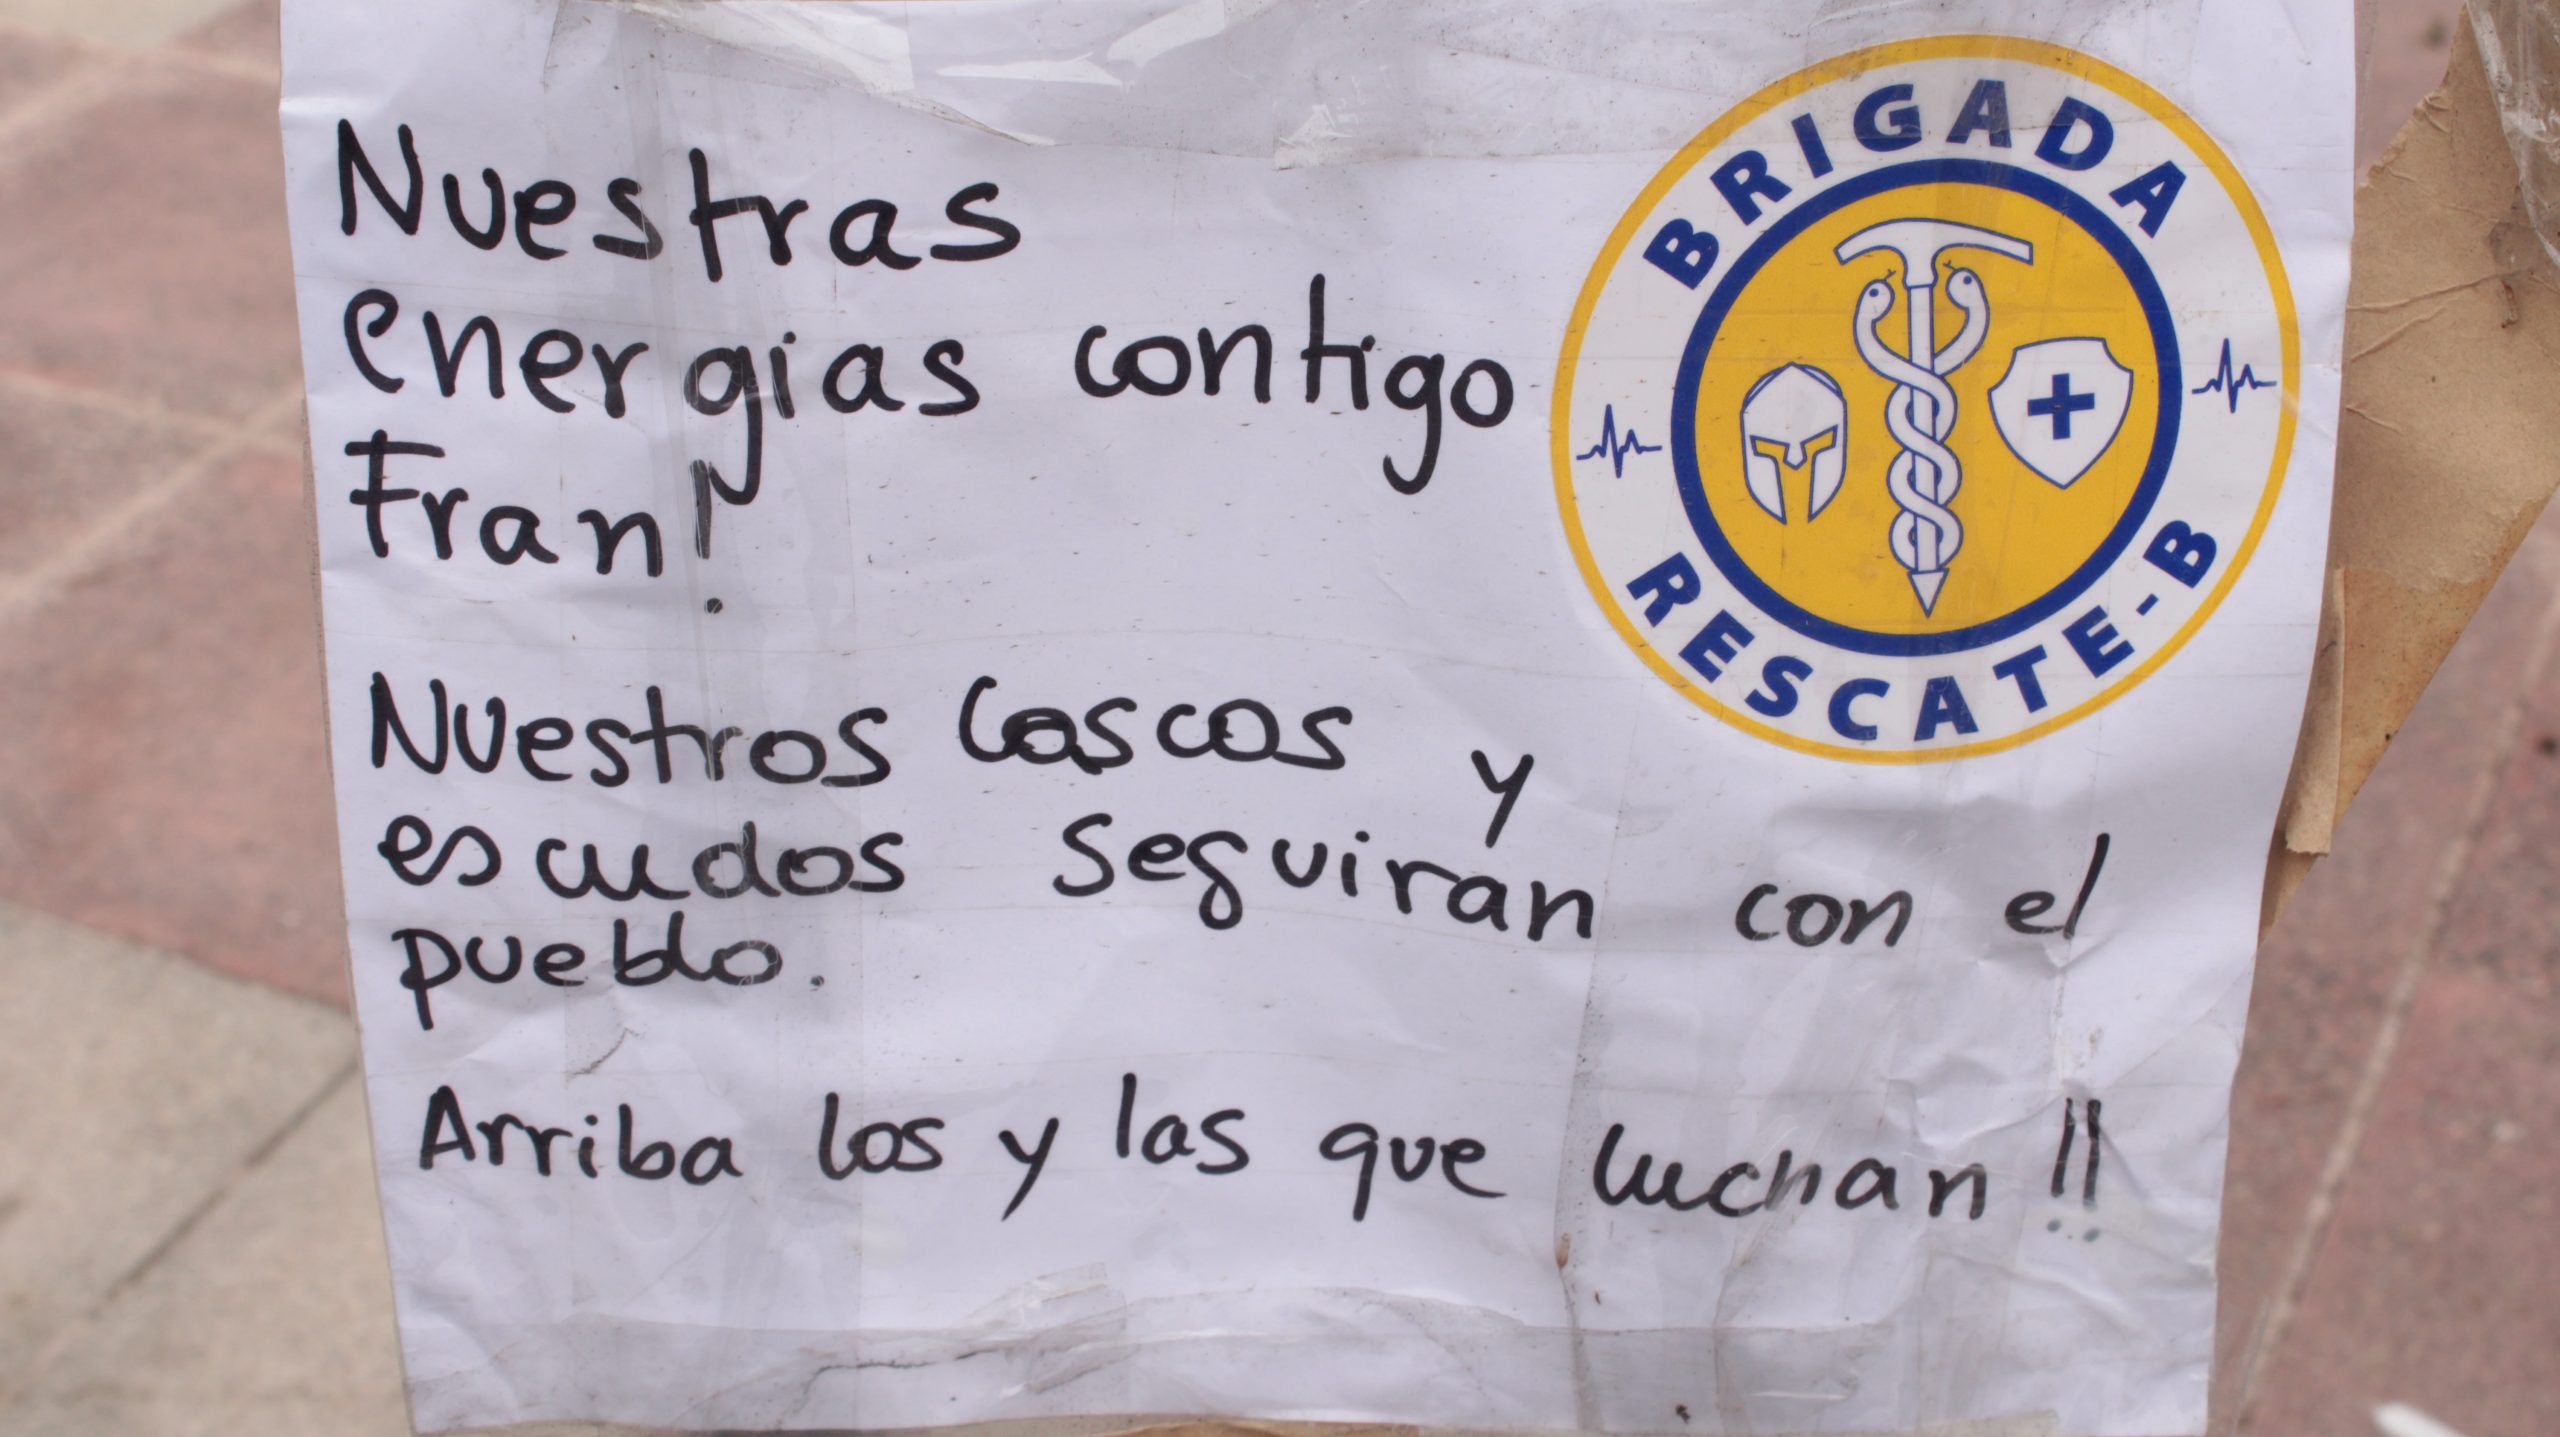 Nuestras
energias contigo
Fran!
Nuestros Cascos y
escudos seguiran con el
pueblo.
Arriba los y las que luchan!!
BRIGADA
RESCATE-B